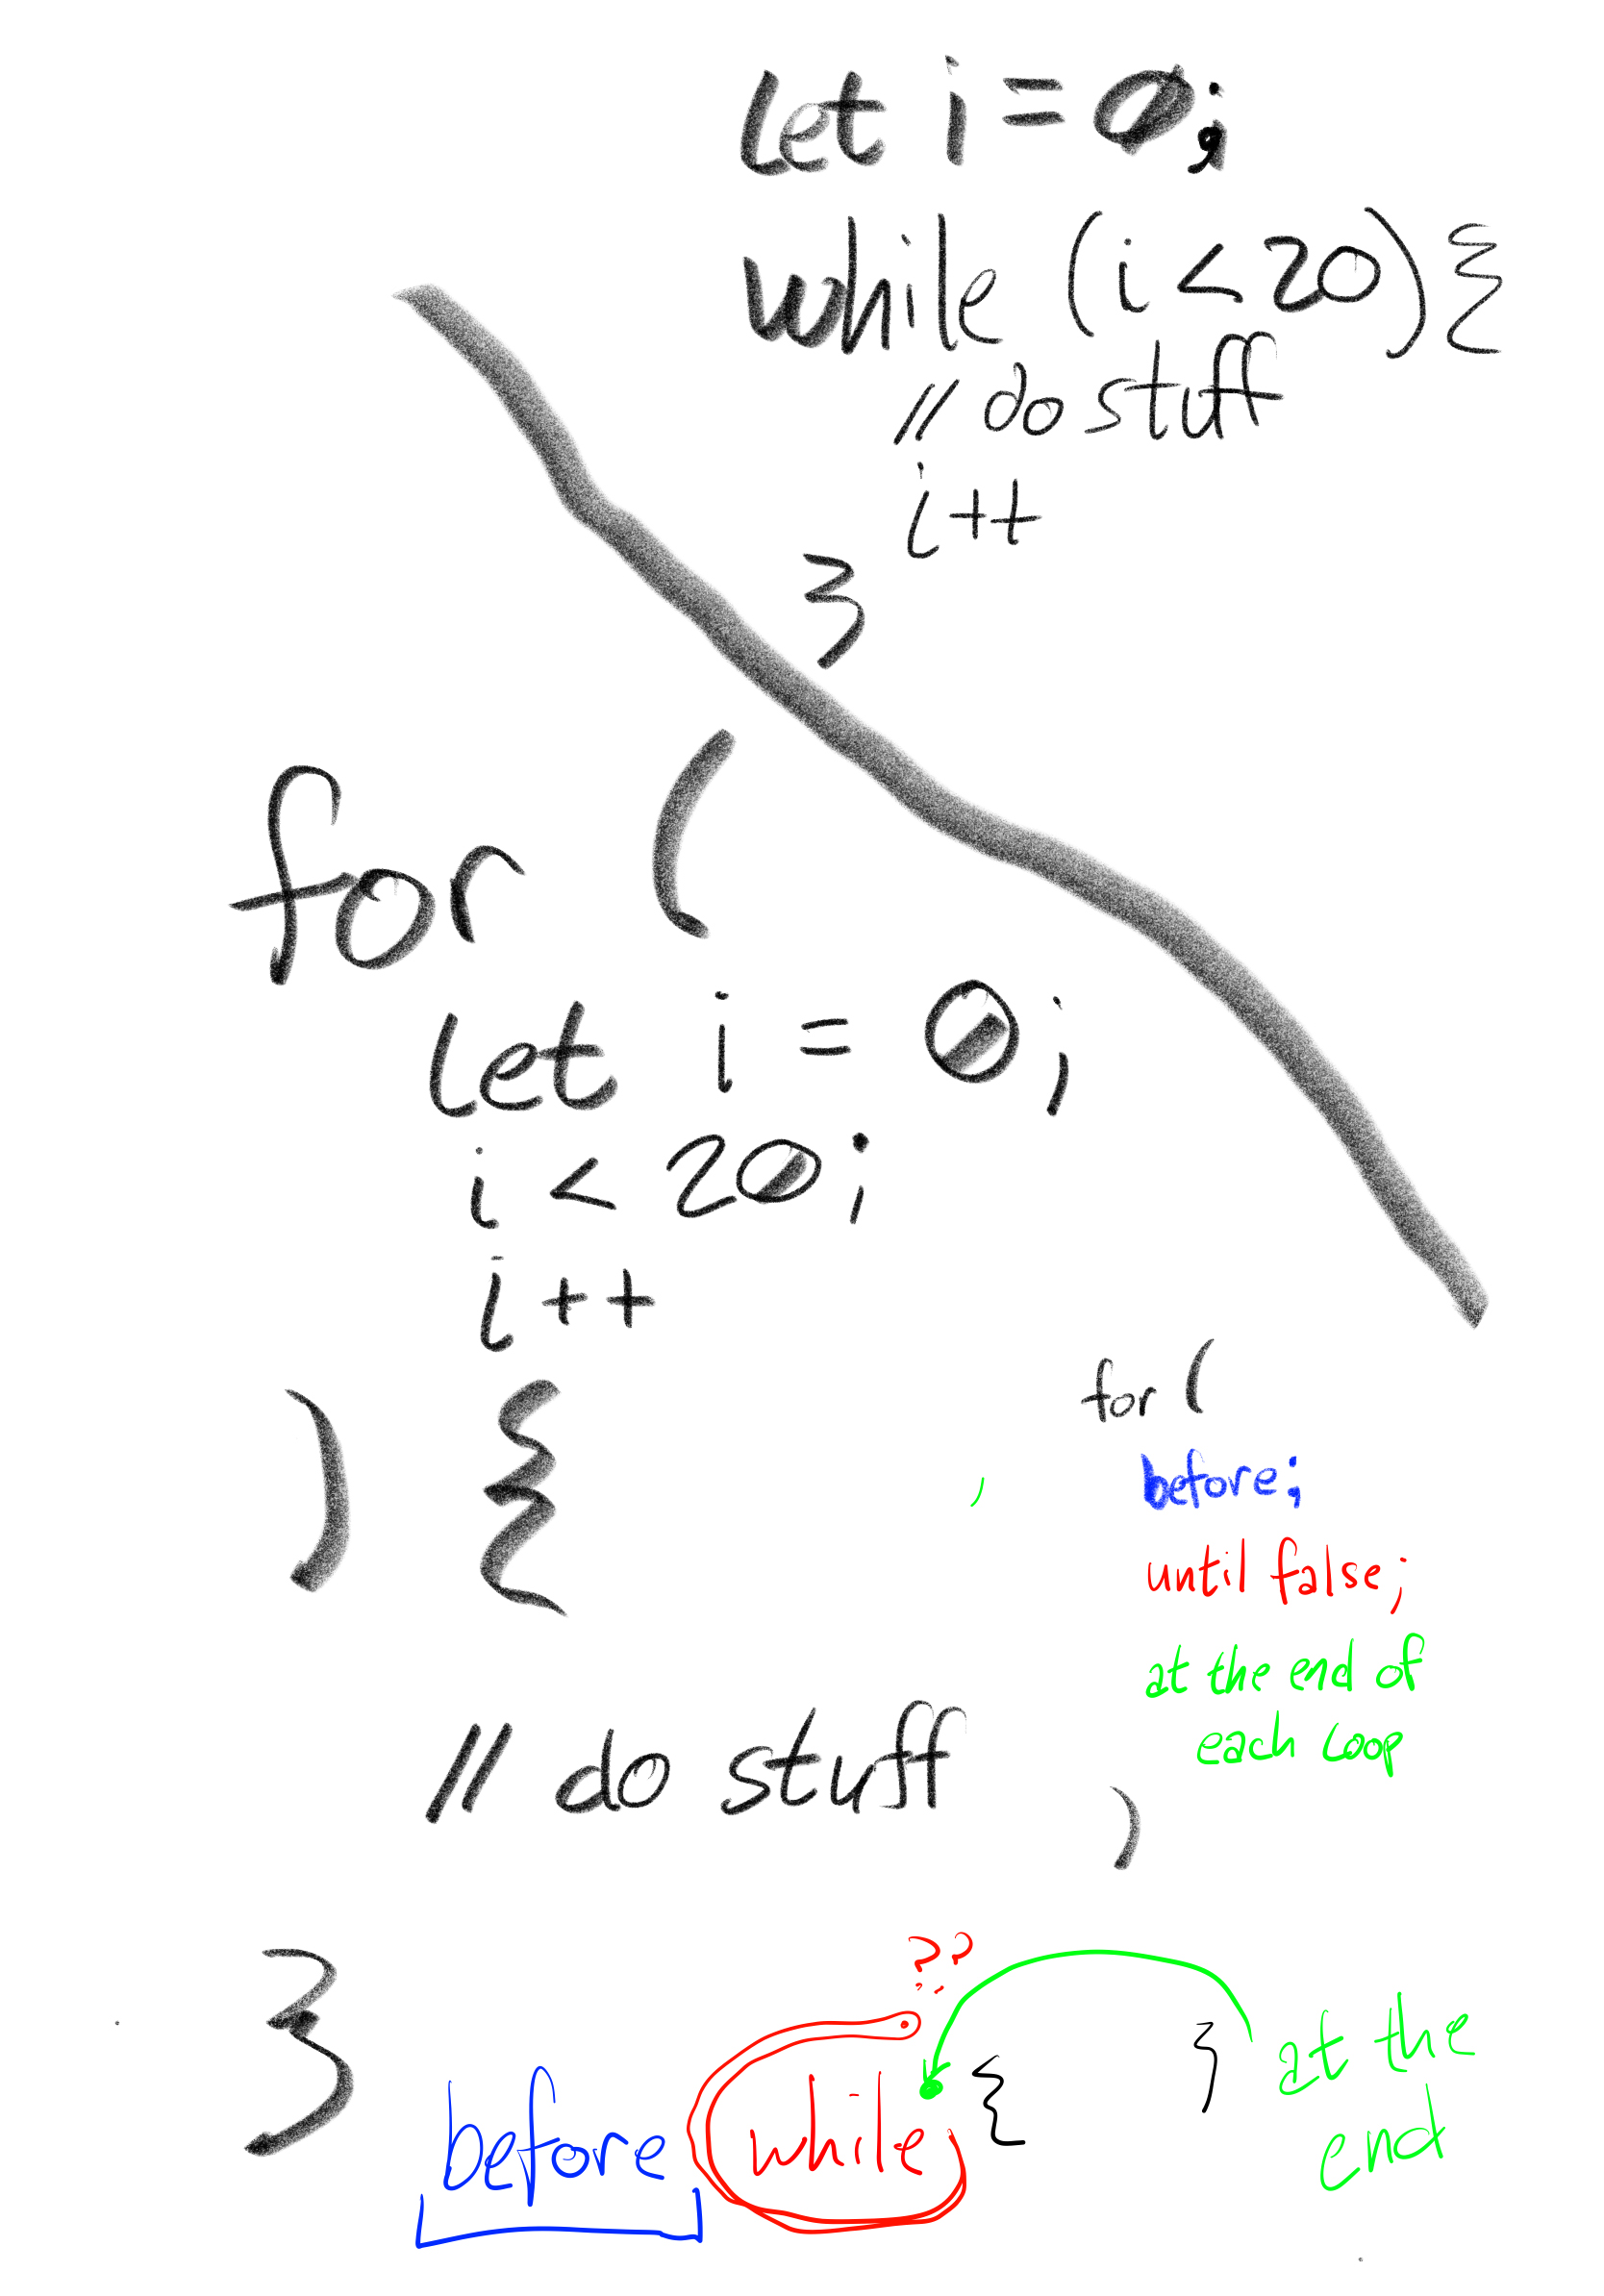 let i = 0;
while (i < 20) {
// do stuff
i++
}
for (
let i = 0;
i < 20;
i++
) {
// do stuff
}
for (
before;
until false;
at the end of
each loop
)
??
before while { } at the
end